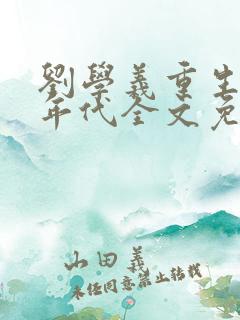 劉學義重生
年代全文免
山田義
未經同意禁止轉載